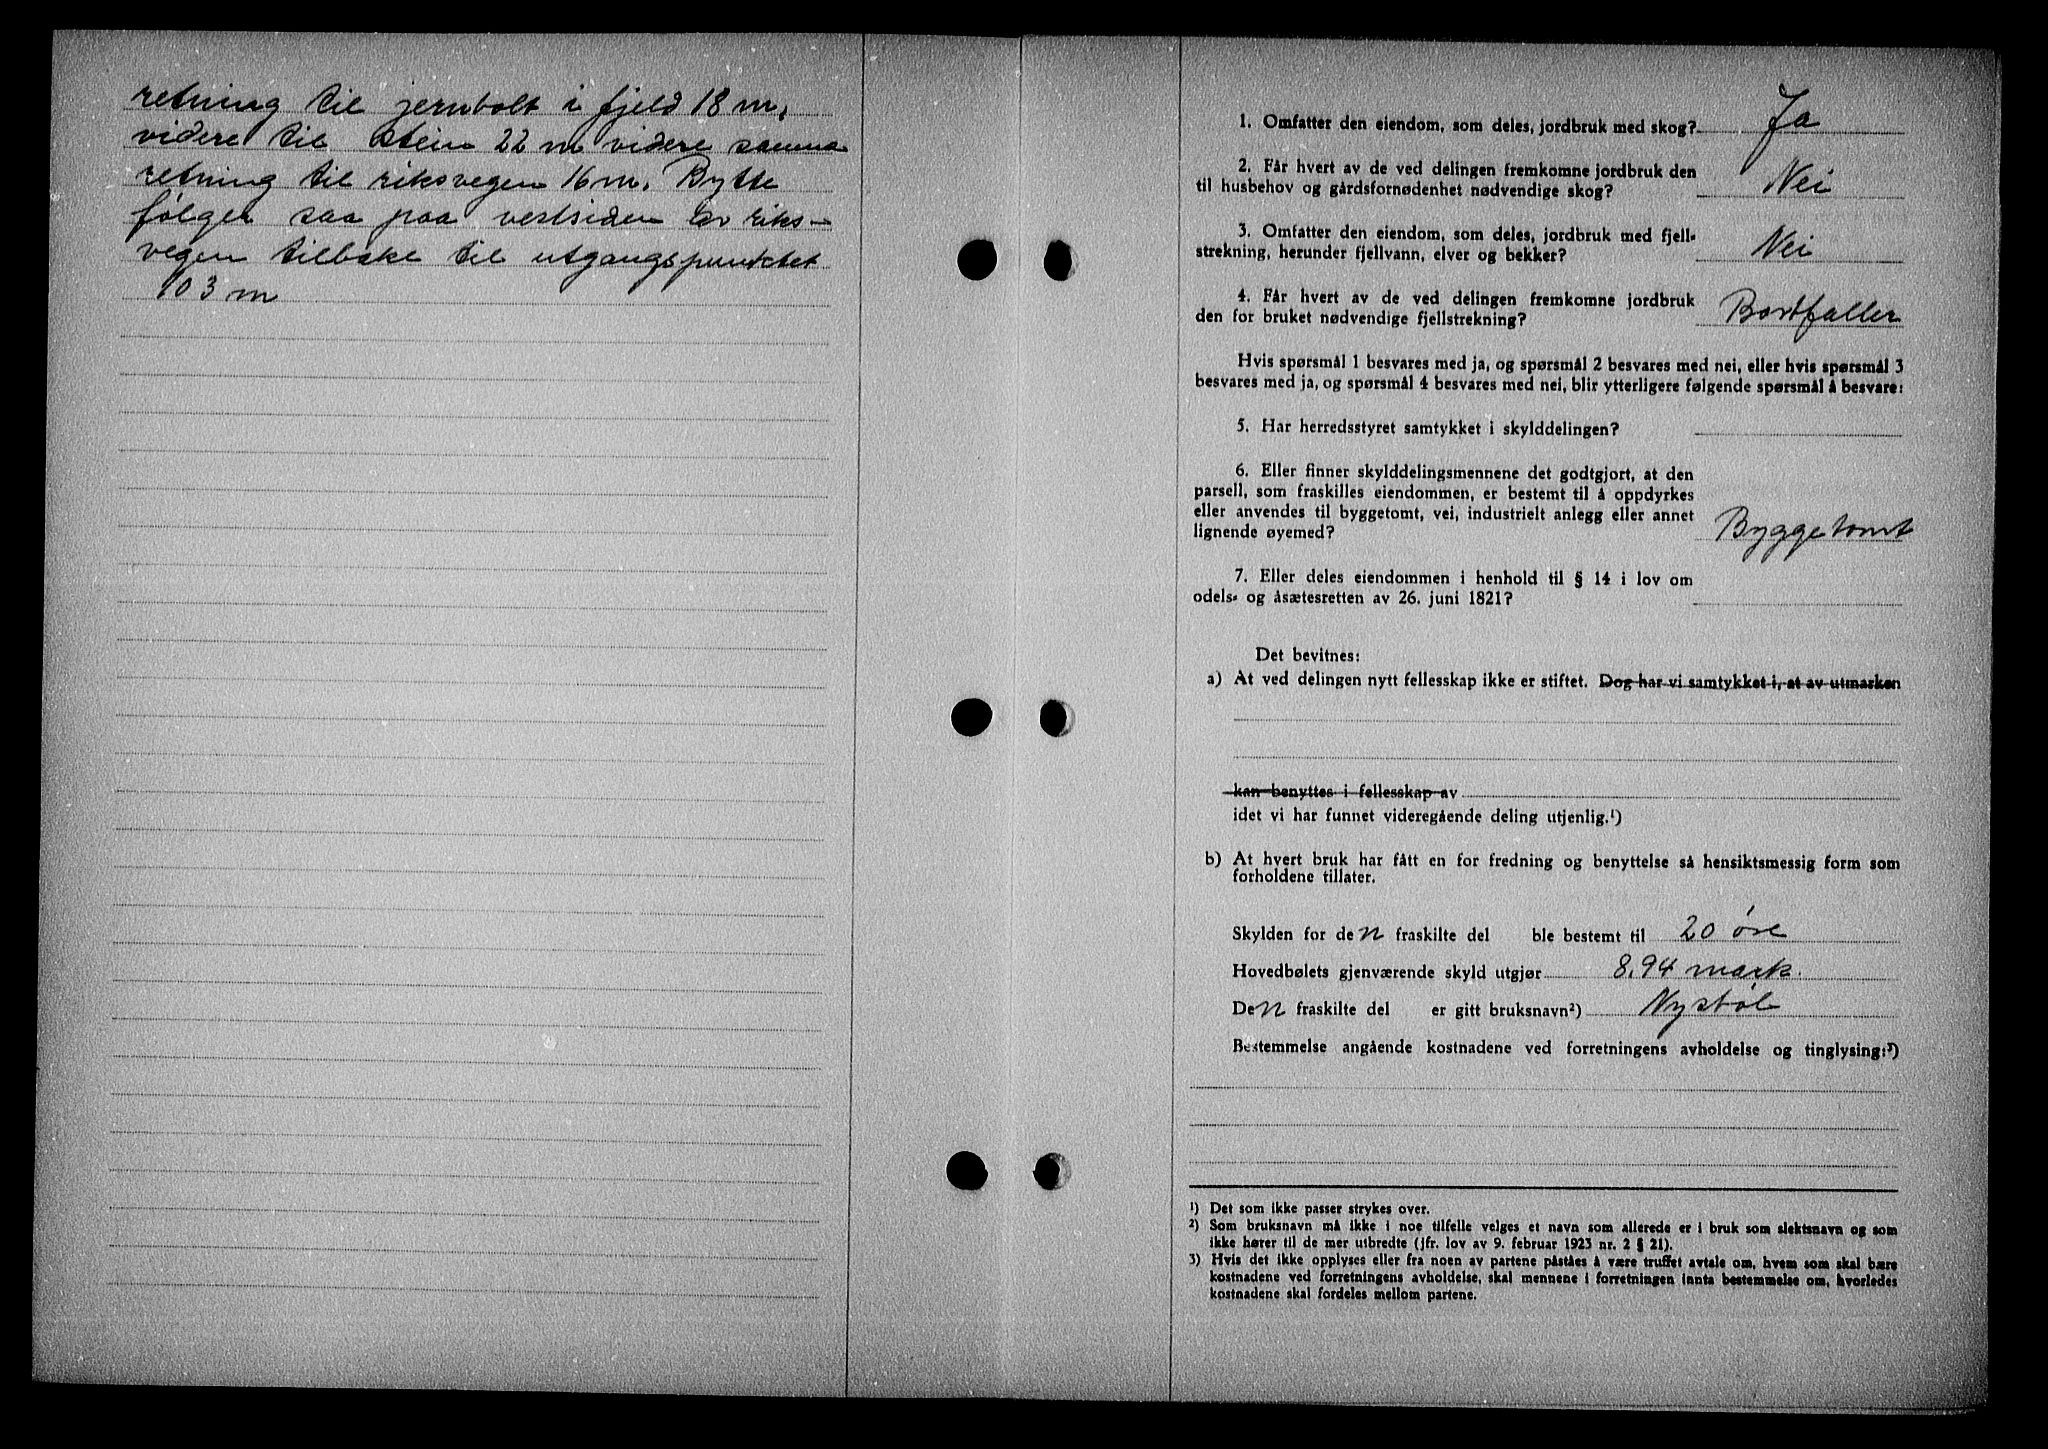 retning til jernbolt i fjeld 18 m,
videre til stein 22 m videre samma
retning til riksvegen 16 m. Bytte
følger saa paa vestsiden av riks-
vegen tilbake til utgangspunktet
103 m
1. Omfatter den eiendom, som deles, jordbruk med skog? Ja
2. Får hvert av de ved delingen fremkomne jordbruk den
til husbehov og gårdsfornødenhet nødvendige skog? Nei
3. Omfatter den eiendom, som deles, jordbruk med fjell-
strekning, herunder fjellvann, elver og bekker? Nei
4. Får hvert av de ved delingen fremkomne jordbruk
den for bruket nødvendige fjellstrekning? Bortfaller
Hvis spørsmål 1 besvares med ja, og spørsmål 2 besvares med nei, eller hvis spørsmål 3
besvares med ja, og spørsmål 4 besvares med nei, blir ytterligere følgende spørsmål å besvare:
5. Har herredsstyret samtykket i skylddelingen?
6. Eller finner skylddelingsmennene det godtgjort, at den
parsell, som fraskilles eiendommen, er bestemt til å oppdyrkes
eller anvendes til byggetomt, vei, industrielt anlegg eller annet
lignende øyemed? Byggetomt
7. Eller deles eiendommen i henhold til § 14 i lov om
odels- og åsætesretten av 26. juni 1821?
Det bevitnes:
a) At ved delingen nytt fellesskap ikke er stiftet. Dog har vi samtykket i, at av utmarken
kan benyttes i fellesskap av
idet vi har funnet videregående deling utjenlig.¹)
b) At hvert bruk har fått en for fredning og benyttelse så hensiktsmessig form som
forholdene tillater.
Skylden for den fraskilte del ble bestemt til 20 øre
Hovedbølets gjenværende skyld utgjør 8,94 mark.
Den fraskilte del er gitt bruksnavn²) Nystøl
Bestemmelse angående kostnadene ved forretningens avholdelse og tinglysing:³)
¹) Det som ikke passer strykes over.
²) Som bruksnavn må ikke i noe tilfelle velges et navn som allerede er i bruk som slektsnavn og som
ikke hører til de mer utbredte (jfr. lov av 9. februar 1923 nr. 2 § 21).
³) Hvis det ikke opplyses eller fra noen av partene påståes å være truffet avtale om, hvem som skal bære
kostnadene ved forretningens avholdelse, skal mennene i forretningen innta bestemmelse om, hvorledes
kostnadene skal fordeles mellom partene.